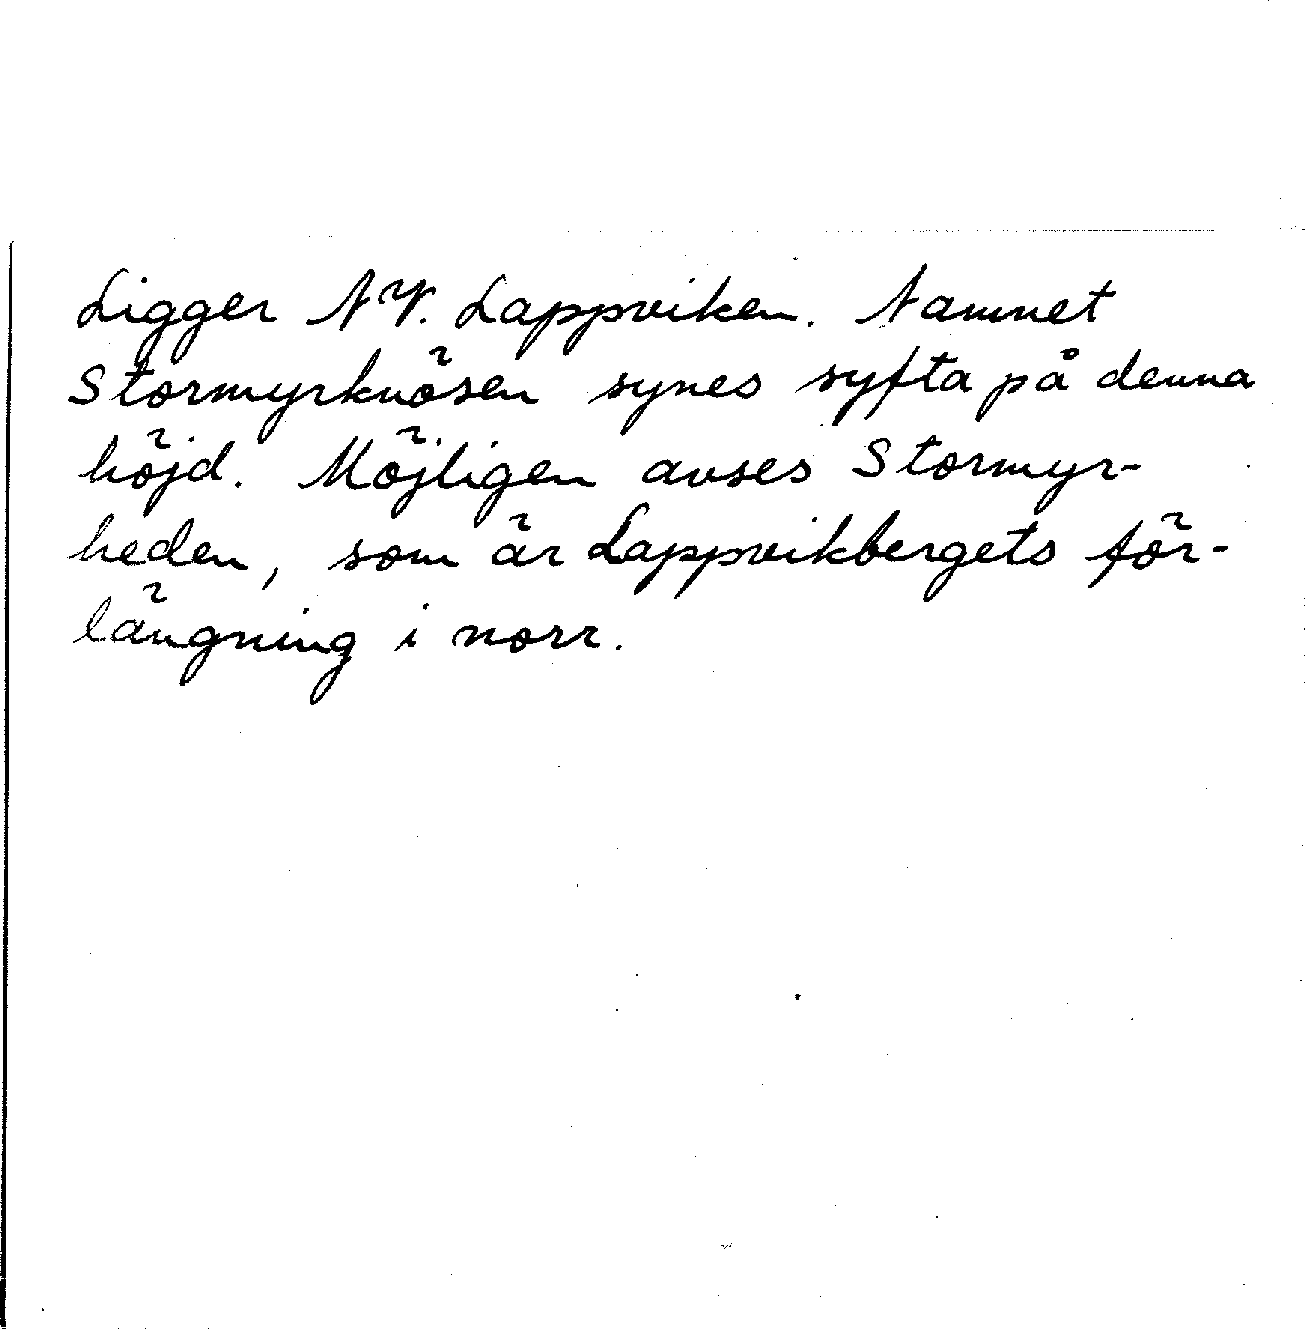 Ligger NV. Lappviken. Namnet
Stormyrknösen synes syfta på denna
höjd. Möjligen avses Stormyr-
heden, som är Lappvikbergets för-
längning i norr.